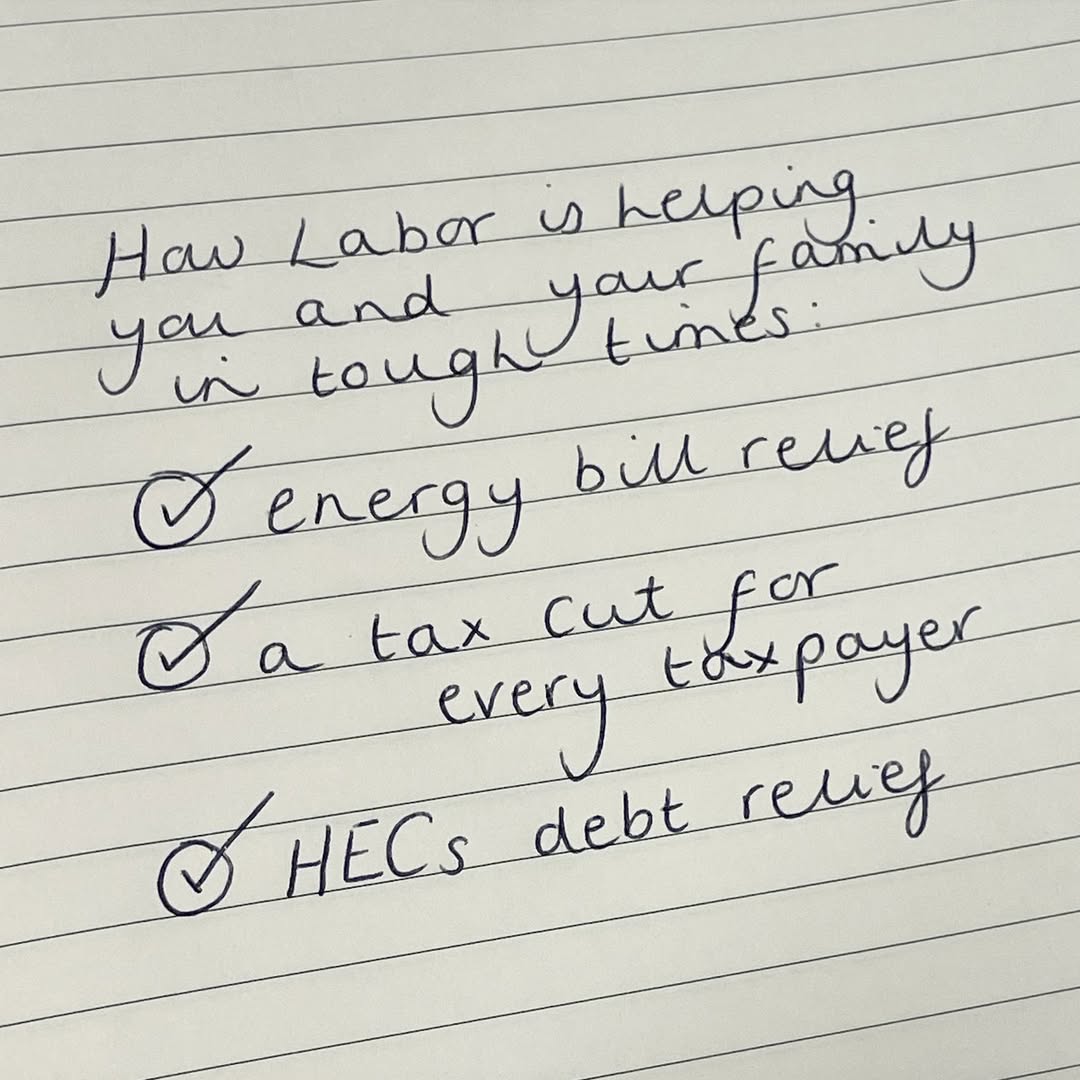 How Labor is helping
you and your family
in tough times:
energy bill relief
a tax cut for
every taxpayer
HECs debt relief